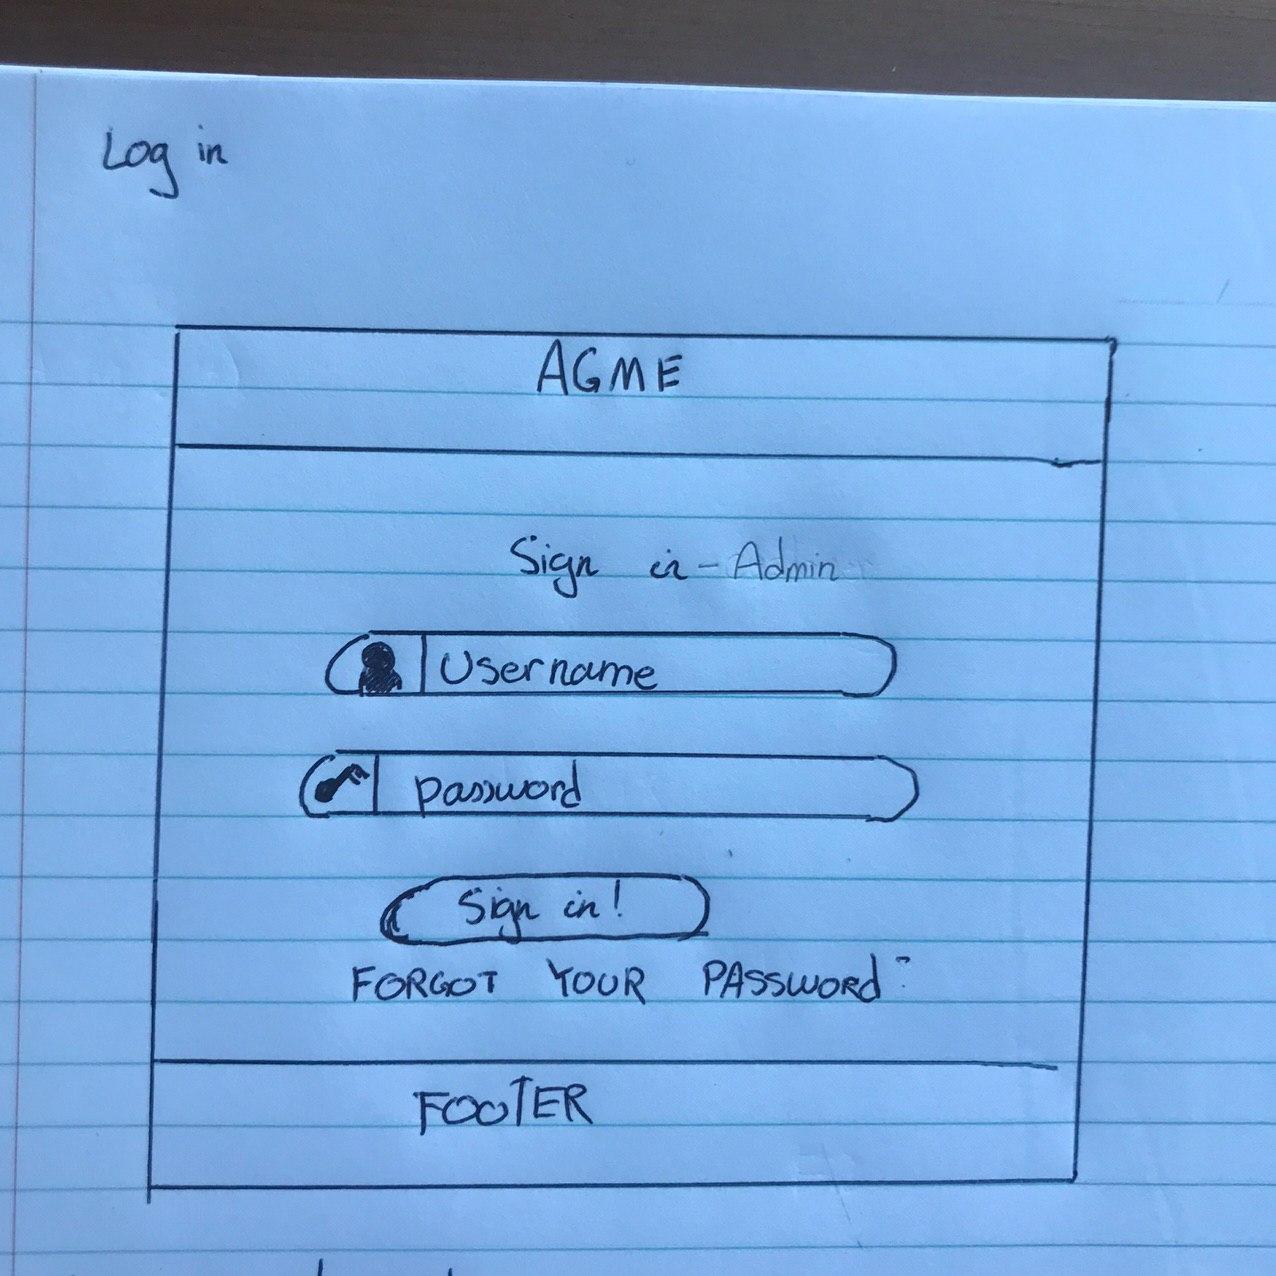 Log in
AGME
Sign in - Admin
Username
password
Sign in!
FORGOT YOUR PASSWORD?
FOOTER